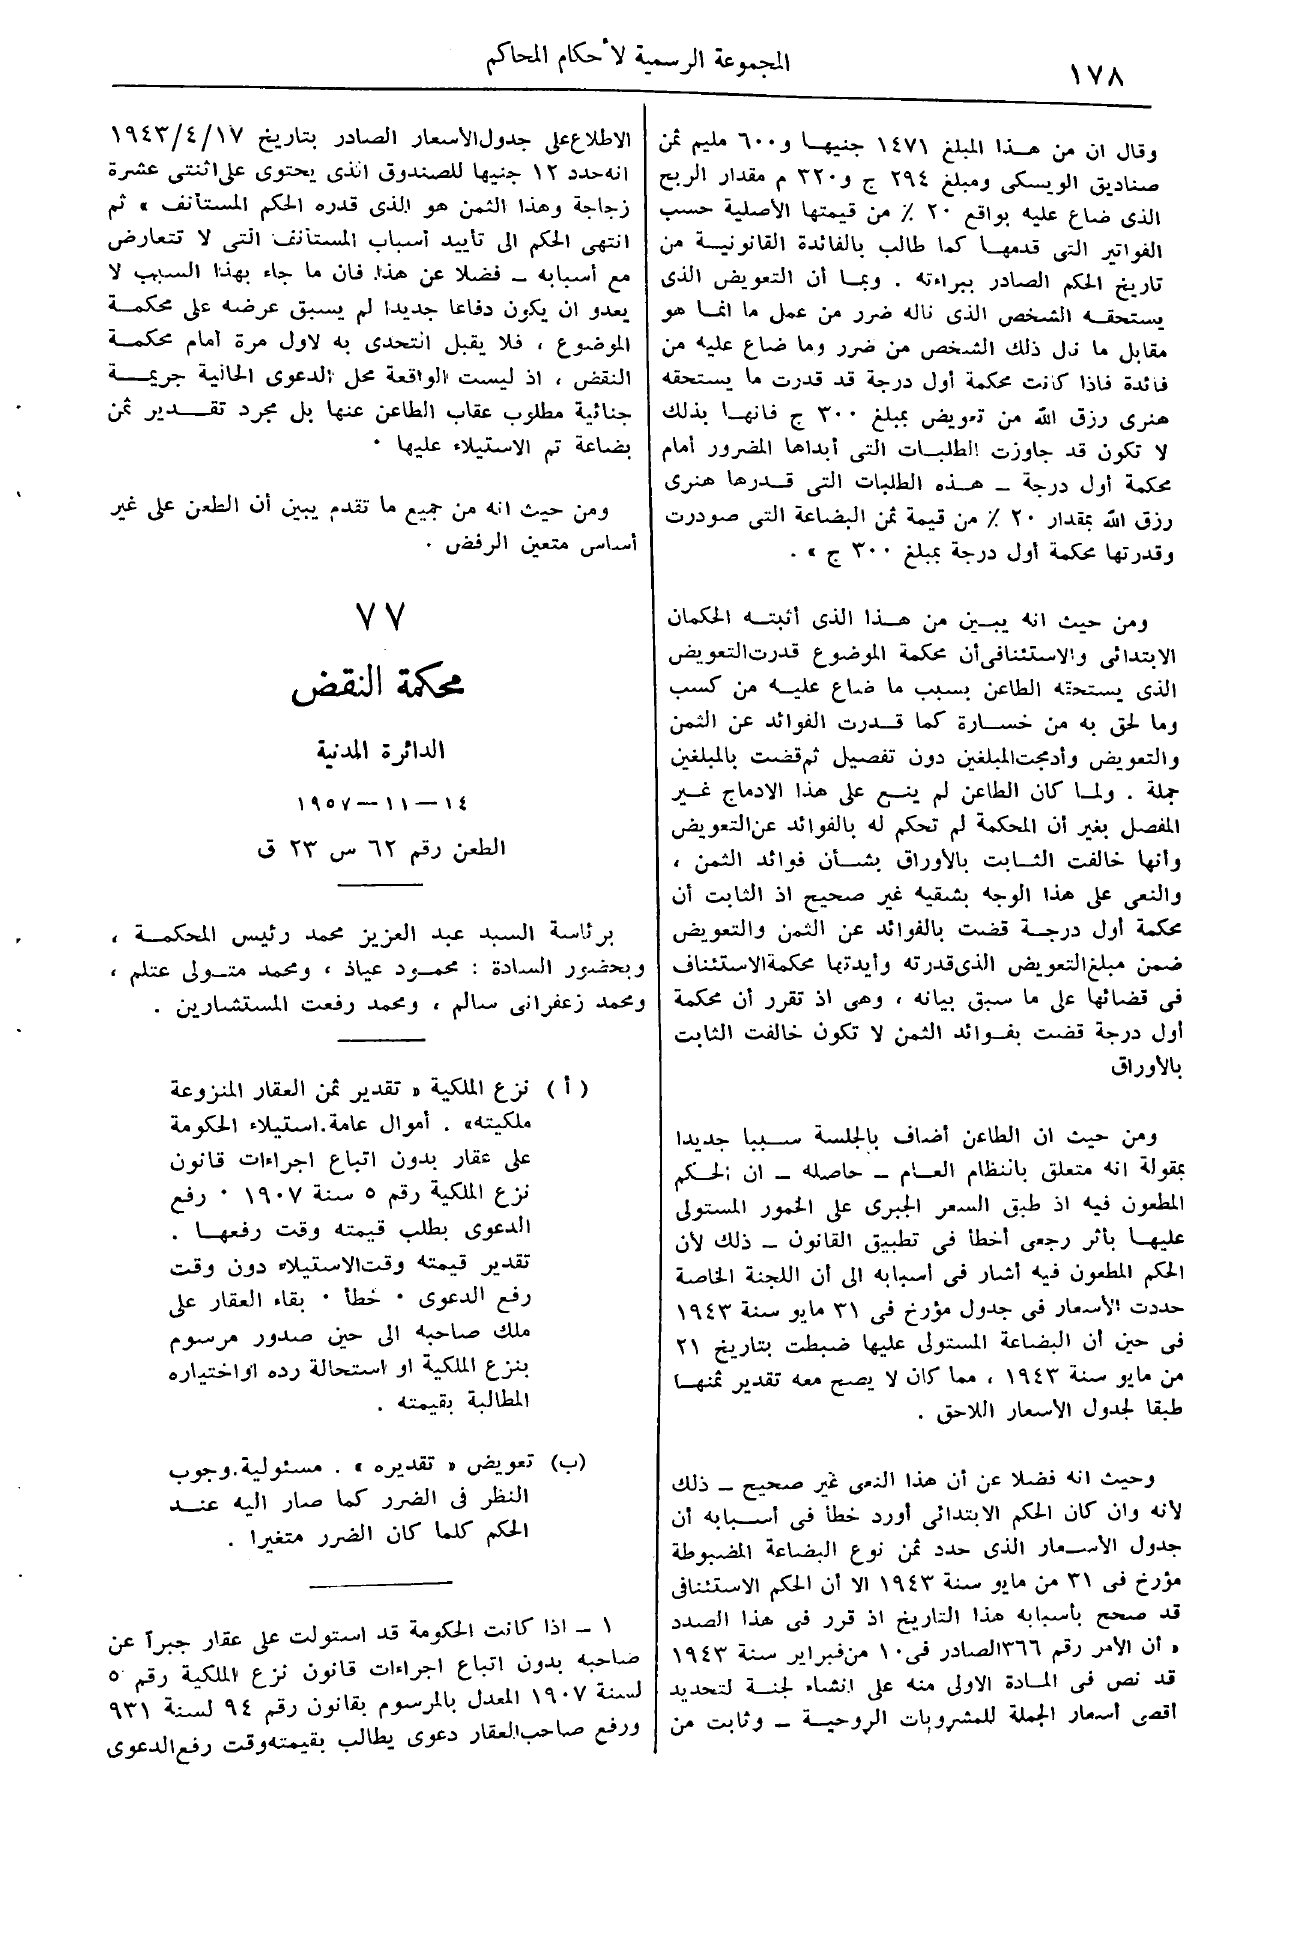 ١٧٨
المجموعة الرسمية لأحكام المحاكم
وقال ان من هـذا المبلغ ١٤٧١ جنيهـا و٦٠٠ مليم ثمن
صناديق الويسكى ومبلغ ٢٩٤ ج و٣٢٠ م مقدار الربح
الذى ضاع عليه بواقع ٢٠ ٪ من قيمتها الأصلية حسب
الفواتير التى قدمهـا كما طالب بالفائدة القانونيـة من
تاريخ الحكم الصادر ببراءته . وبما أن التعويض الذى
يستحقـه الشخص الذى ناله ضرر من عمل ما انمـا هو
مقابل ما نال ذلك الشخص من ضرر وما ضاع عليه من
فائدة فاذا كانت محكمة أول درجة قد قدرت ما يستحقه
هنرى رزق الله من تعويض بمبلغ ٣٠٠ ج فانهـا بذلك
لا تكون قد جاوزت الطلبـات التى أبداها المضرور أمام
محكمة أول درجة – هـذه الطلبات التى قـدرها هنرى
رزق الله بمقدار ٢٠ ٪ من قيمة ثمن البضاعة التى صودرت
وقدرتها محكمة أول درجة بمبلغ ٣٠٠ ج » .
ومن حيث انه يبـين من هـذا الذى أثبتـه الحكمان
الابتدائى والاستئنافى أن محكمة الموضوع قدرت التعويض
الذى يستحقه الطاعن بسبب ما ضاع عليـه من كسب
وما لحق به من خسـارة كما قـدرت الفوائد عن الثمن
والتعويض وأدمجت المبلغين دون تفصيل ثم قضت بالمبلغين
جملة . ولمـا كان الطاعن لم ينـع على هذا الادماج غـير
المفصل بغير أن المحكمة لم تحكم له بالفوائد عن التعويض
وأنها خالفت الثـابت بالأوراق بشـأن فوائد الثمن ،
والنعى على هذا الوجه بشقيه غير صحيح اذ الثابت أن
محكمة أول درجـة قضت بالفوائد عن الثمن والتعويض
ضمن مبلغ التعويض الذى قدرته وأيدتها محكمة الاستئناف
فى قضائها على ما سبق بيانه ، وهى اذ تقرر أن محكمة
أول درجة قضت بفـوائد الثمن لا تكون خالفت الثابت
بالأوراق
ومن حيث ان الطاعن أضاف بالجلسة سـببا جديدا
بمقولة انه متعلق بالنظام العـام – حاصله – ان الحـكم
المطعون فيه اذ طبق السعر الجبرى على الخمور المستولى
عليهـا بأثر رجعى أخطأ فى تطبيق القانون – ذلك لأن
الحكم المطعون فيه أشار فى أسبابه الى أن اللجنة الخاصة
حددت الأسعار فى جدول مؤرخ فى ٣١ مايو سنة ١٩٤٣
فى حين أن البضاعة المستولى عليها ضبطت بتاريخ ٢١
من مايو سنة ١٩٤٣ ، مما كان لا يصح معه تقدير ثمنهـا
طبقا لجدول الأسعار اللاحق .
وحيث انه فضلا عن أن هذا النعى غير صحيح – ذلك
لأنه وان كان الحكم الابتدائى أورد خطأ فى أسـبابه أن
جدول الأسـعار الذى حدد ثمن نوع البضاعة المضبوطة
مؤرخ فى ٣١ من مايو سنة ١٩٤٣ الا أن الحكم الاستئنافى
قد صحح بأسبابه هذا التاريخ اذ قرر فى هذا الصدد
« أن الأمر رقم ٣٦٦ الصادر فى ١٠ من فبراير سنة ١٩٤٣
قد نص فى المـادة الاولى منه على انشاء لجنـة لتحديد
أقصى أسعار الجملة للمشروبات الروحيـة – وثابت من
الاطلاع على جدول الأسعار الصادر بتاريخ ١٩٤٣/٤/١٧
انه حدد ١٢ جنيها للصندوق الذى يحتوى على اثنتى عشرة
زجاجة وهذا الثمن هو الذى قدره الحكم المستأنف » ثم
انتهى الحكم الى تأييد أسباب المستأنف التى لا تتعارض
مع أسبابه – فضلا عن هذا. فان ما جاء بهذا السبب لا
يعدو ان يكون دفاعا جديدا لم يسبق عرضه على محكمـة
الموضوع ، فلا يقبل التحدى به لاول مرة أمام محكمـة
النقض ، اذ ليست الواقعة محل الدعوى الحالية جريمـة
جنائية مطلوب عقاب الطاعن عنها بل مجرد تقـدير ثمن
بضاعة تم الاستيلاء عليها .
ومن حيث انه من جميع ما تقدم يبين أن الطعن على غير
أساس متعين الرفض .
٧٧
محكمة النقض
الدائرة المدنية
١٤ – ١١ – ١٩٥٧
الطعن رقم ٦٢ س ٢٣ ق
برئاسة السيد عبد العزيز محمد رئيس المحكمـة ،
وبحضور السادة : محمـود عياذ ، ومحمد متـولى عتلم ،
ومحمد زعفرانى سالم ، ومحمد رفعت المستشارين .
( أ ) نزع الملكية « تقدير ثمن العقار المنزوعة
ملكيته» . أموال عامة. استيلاء الحكومة
على عقار بدون اتباع اجراءات قانون
نزع الملكية رقم ٥ سنة ١٩٠٧ . رفع
الدعوى بطلب قيمته وقت رفعهـا .
تقدير قيمته وقت الاستيلاء دون وقت
رفع الدعوى . خطأ . بقاء العقار على
ملك صاحبه الى حين صدور مرسوم
بنزع الملكية او استحالة رده او اختياره
المطالبة بقيمته .
(ب) تعويض « تقديره » . مسئولية. وجوب
النظر فى الضرر كما صار اليه عنـد
الحكم كلما كان الضرر متغيرا .
١ – اذا كانت الحكومة قد استولت على عقار جبراً عن
صاحبه بدون اتباع اجراءات قانون نزع الملكية رقم ٥
لسنة ١٩٠٧ المعدل بالمرسوم بقانون رقم ٩٤ لسنة ٩٣١
ورفع صاحب العقار دعوى يطالب بقيمته وقت رفع الدعوى